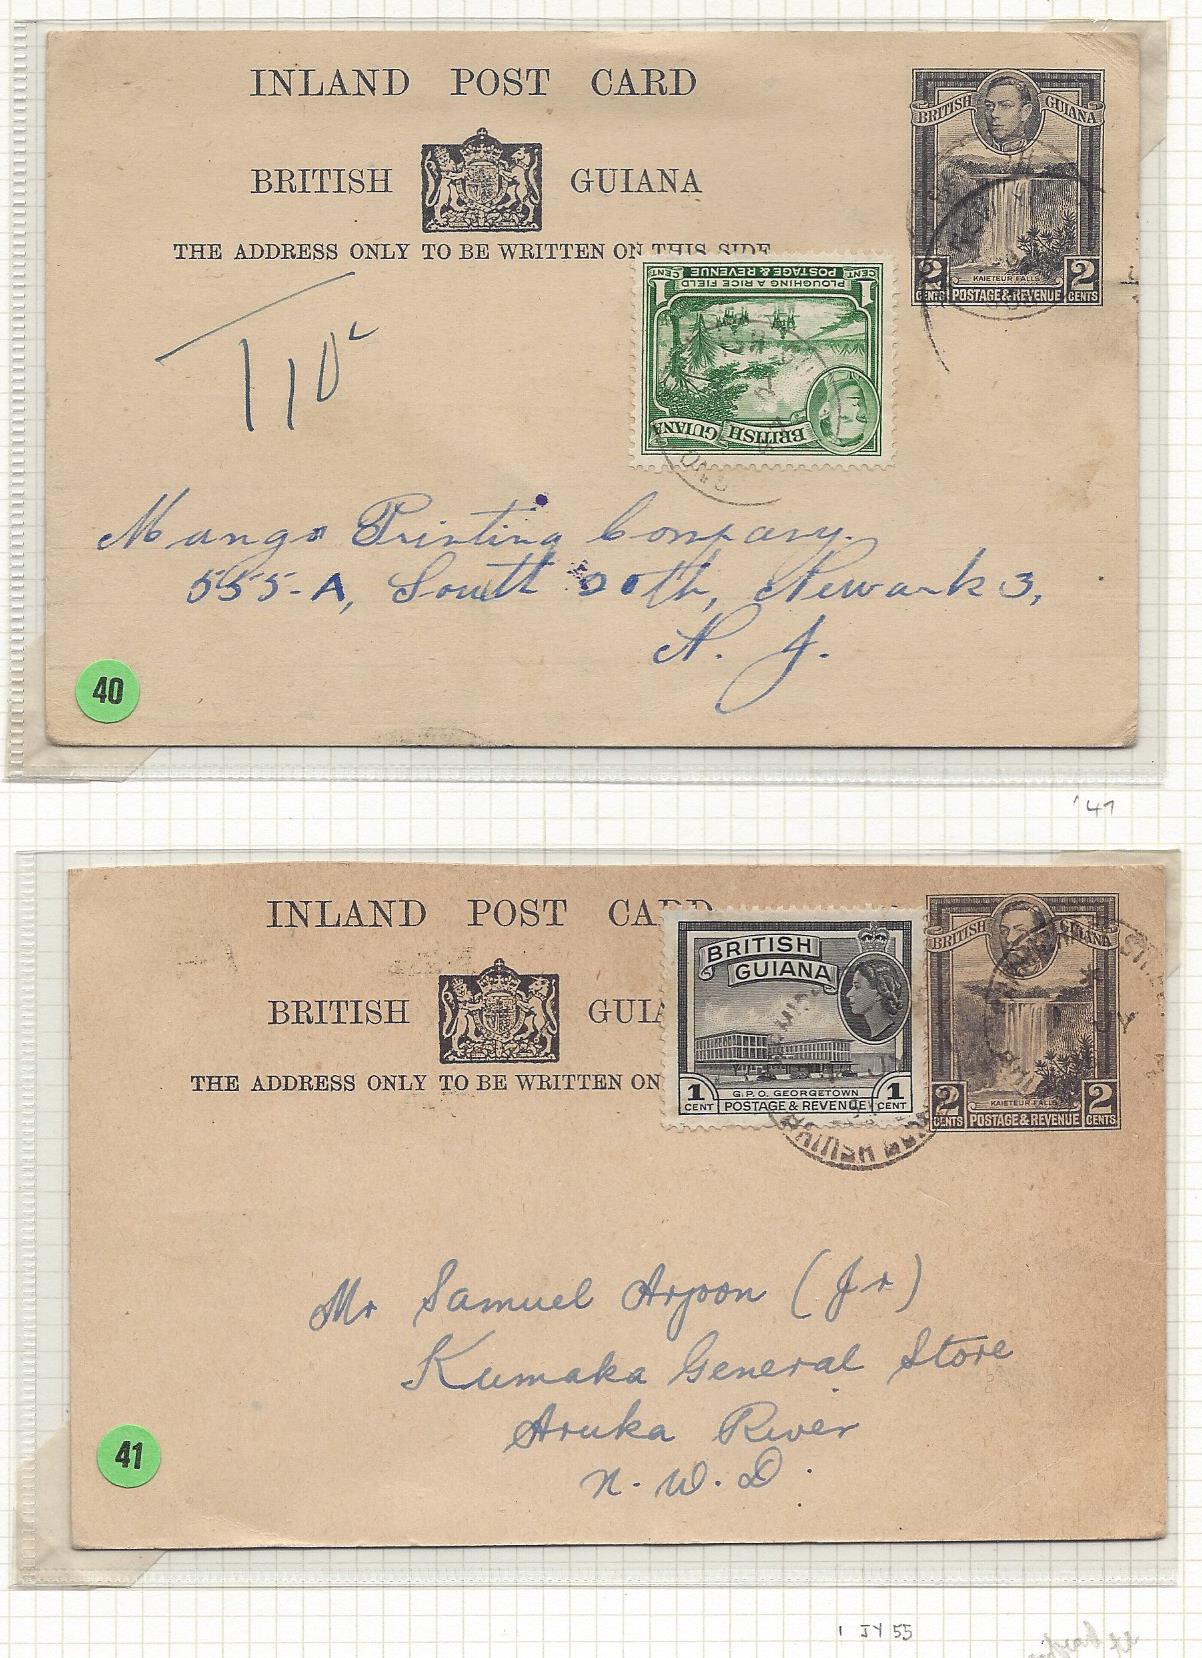 INLAND POST CARD
BRITISH GUIANA
THE ADDRESS ONLY TO BE WRITTEN ON THIS SIDE
BRITISH GUIANA
KAIETEUR FALLS
2 CENTS POSTAGE & REVENUE 2 CENTS
1 CENT PLOUGHING A RICE FIELD POSTAGE & REVENUE 1 CENT
BRITISH GUIANA
T 10c
Mango Printing Company.
555-A, South 20th, Newark 3,
N. J.
40
'47
INLAND POST CARD
BRITISH GUIA
THE ADDRESS ONLY TO BE WRITTEN ON
BRITISH
GUIANA
G.P.O. GEORGETOWN
1 CENT POSTAGE & REVENUE 1 CENT
BRITISH GUIANA
KAIETEUR FALLS
2 CENTS POSTAGE & REVENUE 2 CENTS
Mr Samuel Arjoon (Jr)
Kumaka General Store
Aruka River
N. W. D.
41
1 JY 55